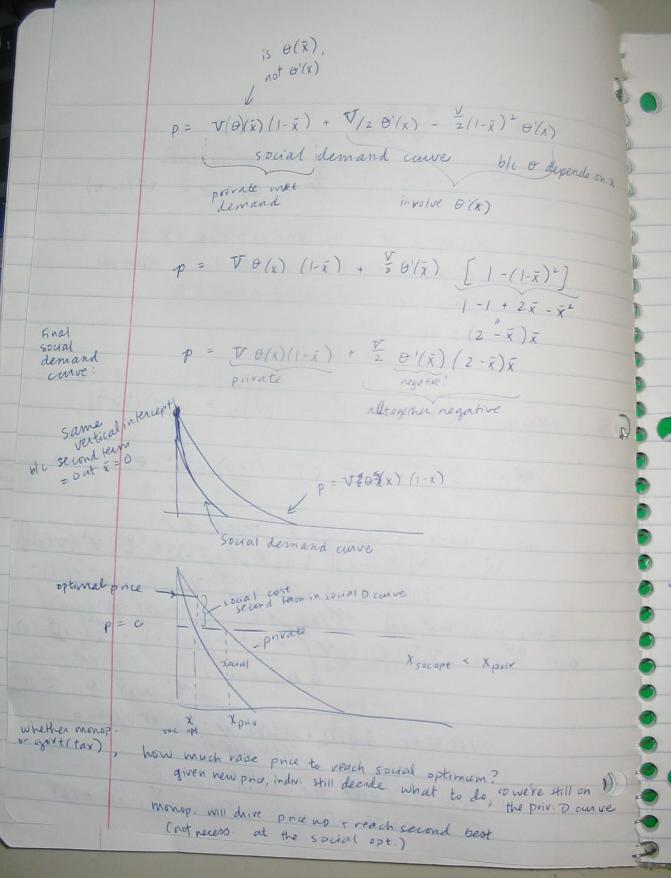 is θ(x̄),
not θ'(x)
p = V(θ)(x̄)(1-x̄) + V/2 θ'(x̄) - V/2 (1-x̄)² θ'(x̄)
social demand curve
b/c θ depends on x
private mkt
demand
involve θ'(x)
p = V θ(x) (1-x̄) + V/2 θ'(x̄) [1-(1-x̄)²]
1 - 1 + 2x̄ - x̄²
"
(2 - x̄) x̄
Final
social
demand
curve:
p = V θ(x)(1-x̄) + V/2 θ'(x̄) (2-x̄)x̄
private
negative!
altogether negative
same
vertical intercept
b/c second term
= 0 at x̄ = 0
p = V θ(x) (1-x)
Social demand curve
optimal price
social cost
second term in social D curve
p = c
private
social
x soc opt < x priv
x
soc opt
x priv
whether monop.
or govt (tax),
how much raise price to reach social optimum?
given new price, indiv. still decide what to do, so we're still on
the priv. D curve
monop. will drive price up + reach second best
(not necess. at the social opt.)